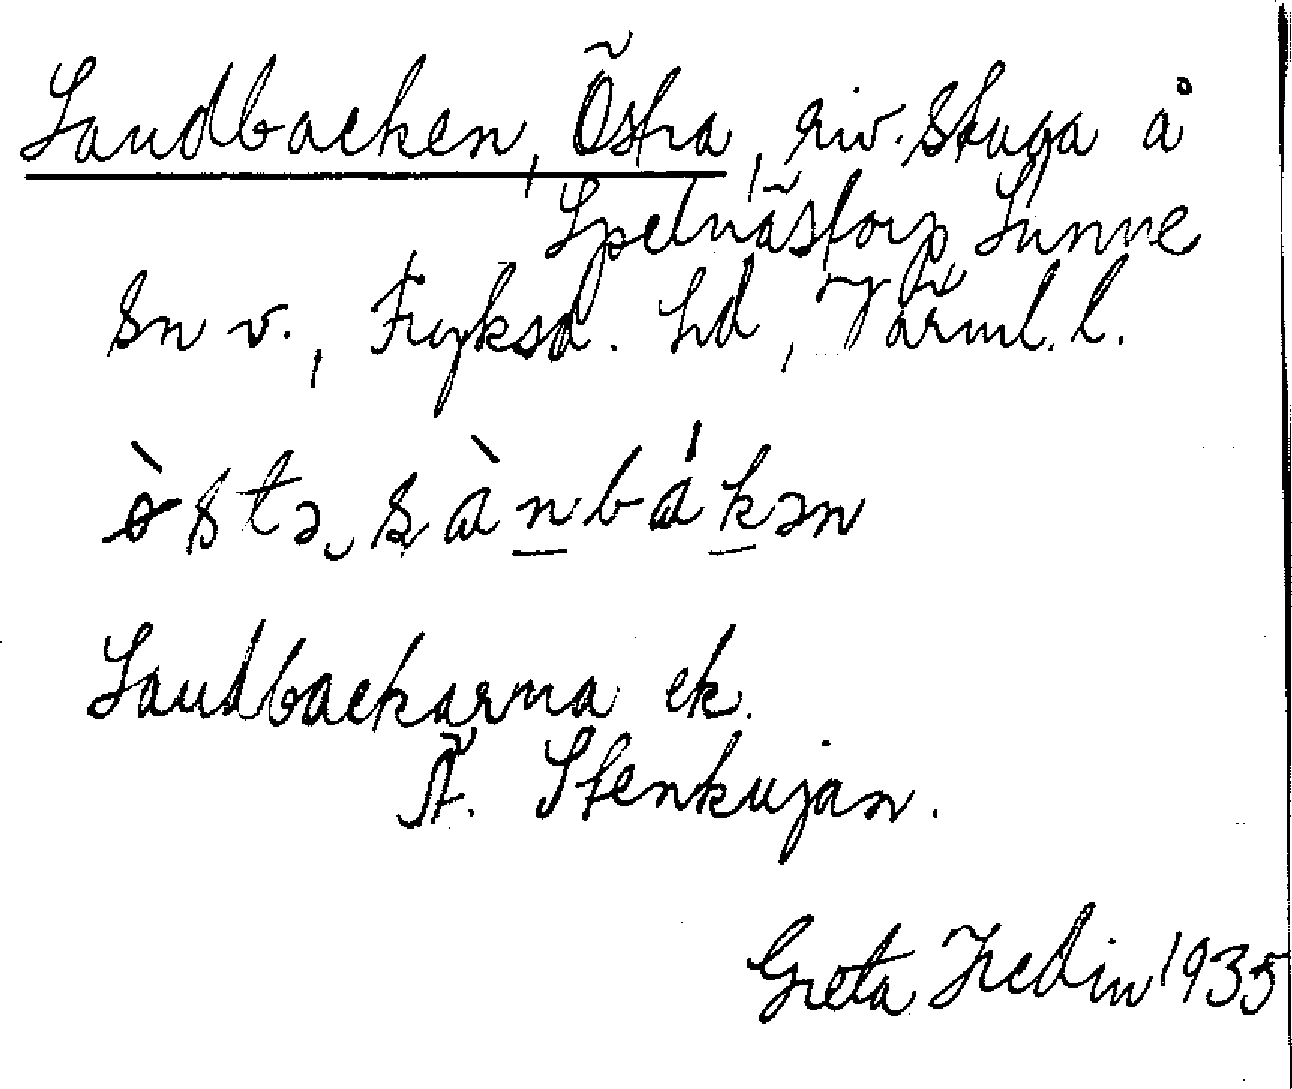 Sandbacken, Östra, riv. stuga å
Spelnästorp Sunne
sn v., Fryksd. hd, Värml. l.
ø̀stə‿sàn̲bák̲ən
Sandbackarna ek.
Ä. Stenkujan.
Greta Hedin 1935